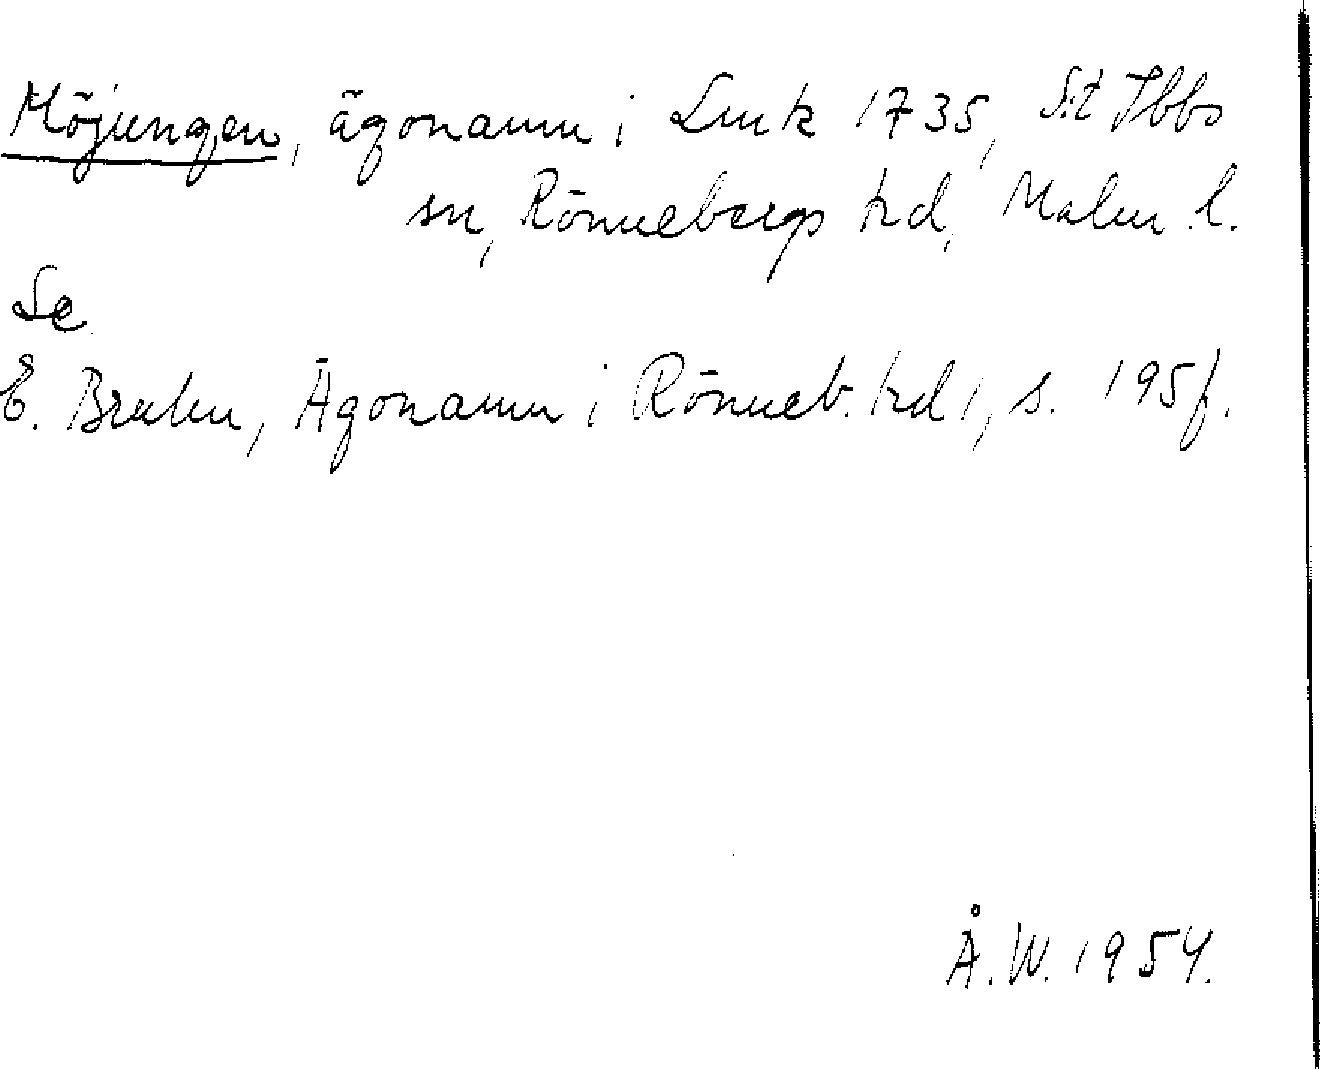 Möjungen, ägonamn i Lmk 1735, S:t Ibbs
sn, Rönnebergs hd, Malm. l.
Se
E. Bruhn, Ägonamn i Rönneb. hd 1, s. 195f.
Å.W. 1954.